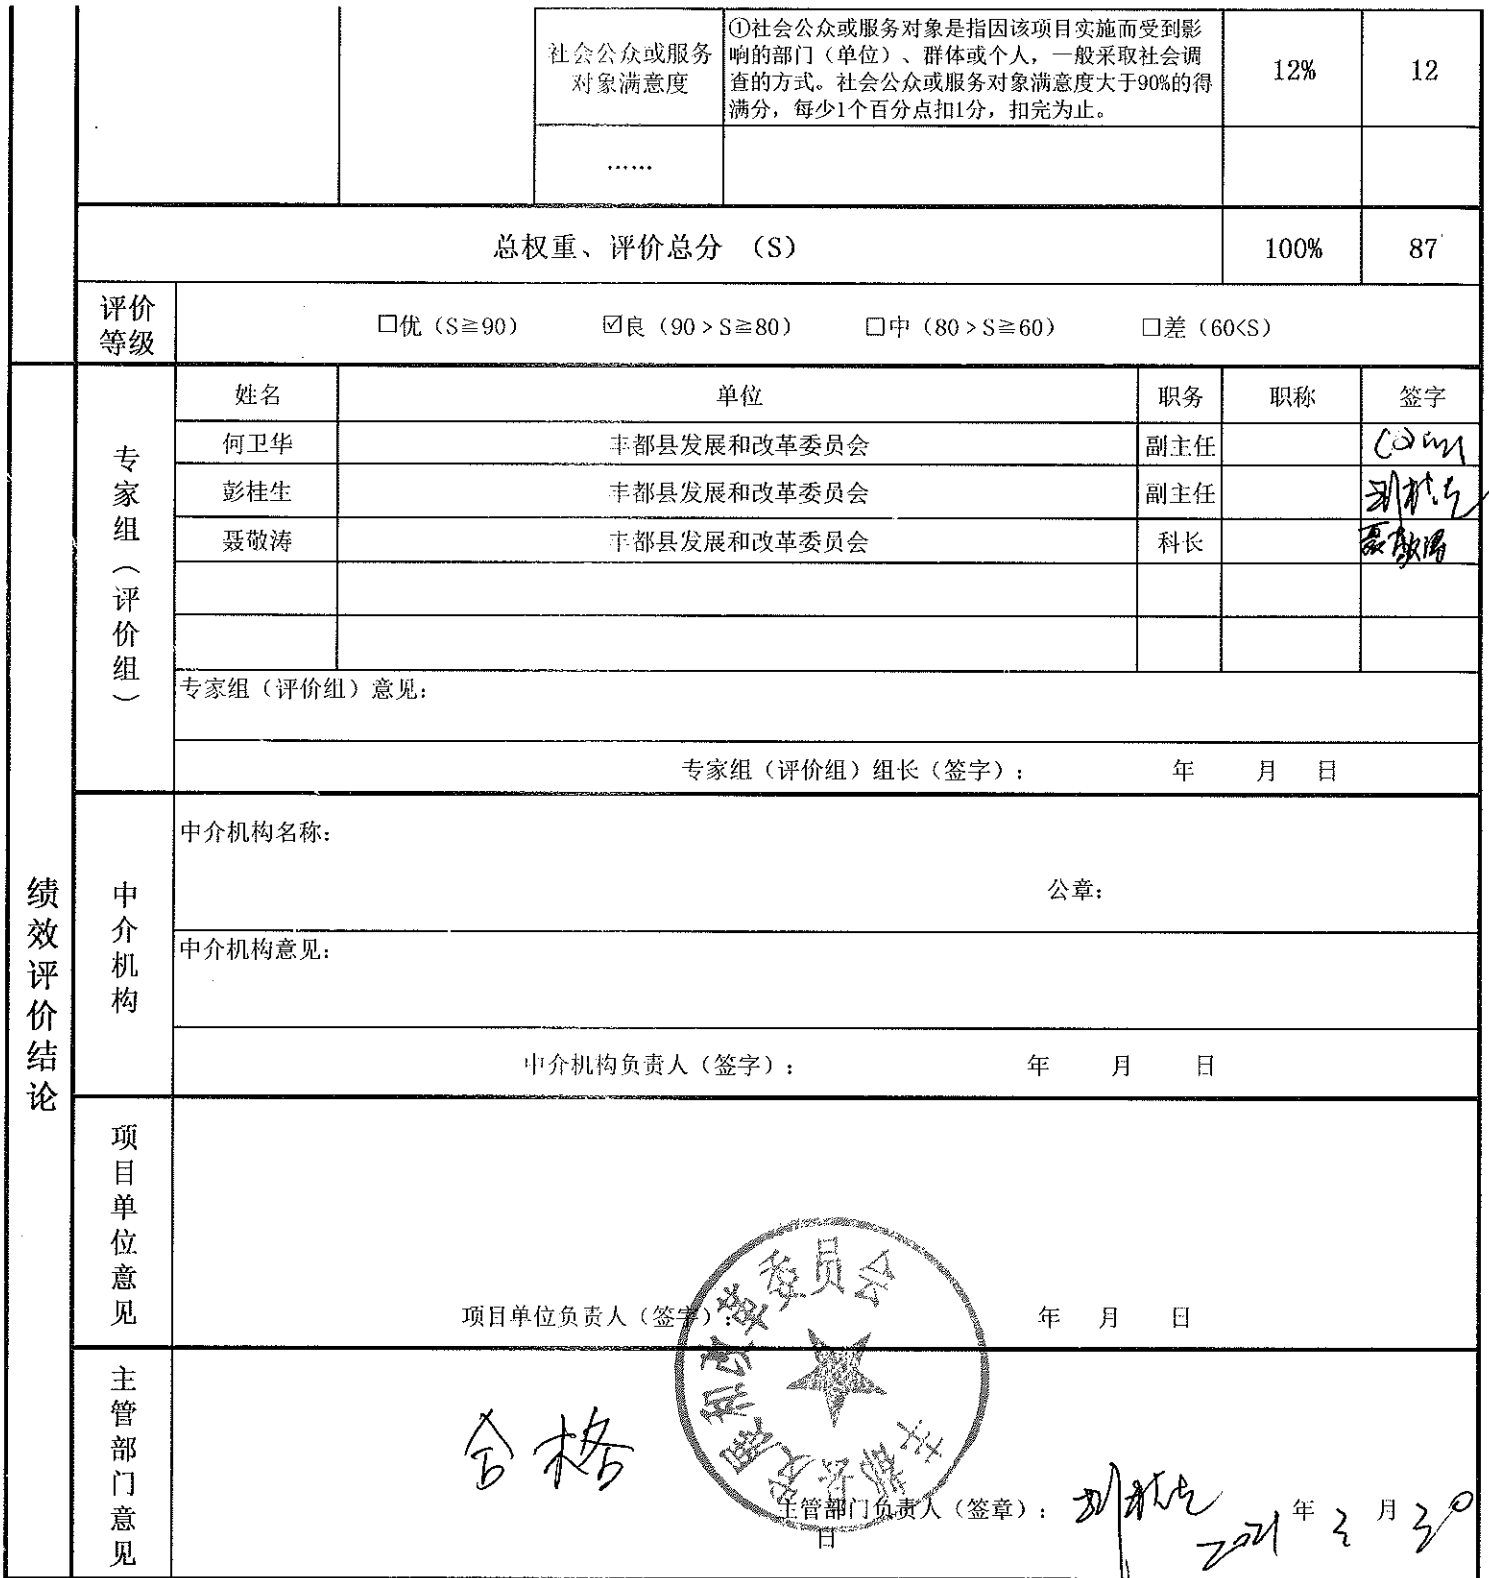 社会公众或服务
对象满意度
①社会公众或服务对象是指因该项目实施而受到影
响的部门（单位）、群体或个人，一般采取社会调
查的方式。社会公众或服务对象满意度大于90%的得
满分，每少1个百分点扣1分，扣完为止。
12%
12
……
总权重、评价总分 （S）
100%
87
评价
等级
☐优（S≧90） ☑良（90＞S≧80） ☐中（80＞S≧60） ☐差（60<S）
绩效评价结论
专家组（评价组）
姓名 单位 职务 职称 签字
何卫华 丰都县发展和改革委员会 副主任
彭桂生 丰都县发展和改革委员会 副主任
聂敬涛 丰都县发展和改革委员会 科长 聂敬涛
专家组（评价组）意见：
专家组（评价组）组长（签字）： 年 月 日
中介机构
中介机构名称：
公章：
中介机构意见：
中介机构负责人（签字）： 年 月 日
项目单位意见
项目单位负责人（签字）： 年 月 日
主管部门意见
合格
丰都县发展和改革委员会
主管部门负责人（签章）： 2021 年 3 月 30
日